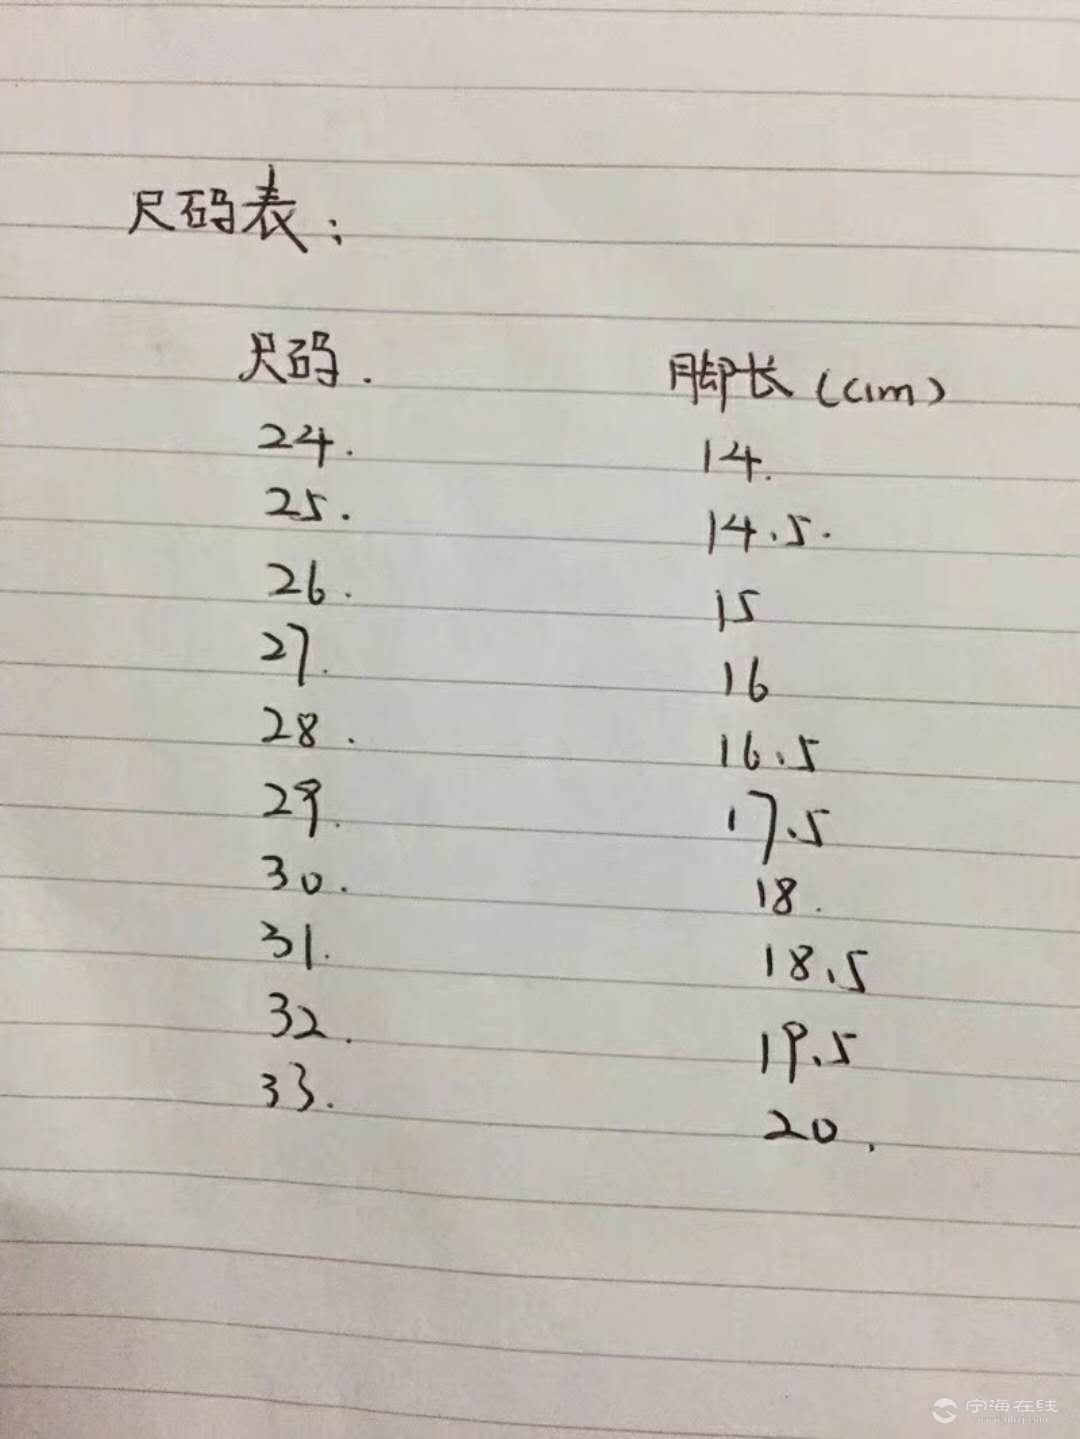 尺码表：
尺码. 脚长(cm)
24. 14.
25. 14.5.
26. 15
27. 16
28. 16.5
29. 17.5
30. 18.
31. 18.5
32. 19.5
33. 20.
宁海在线
www.nhzj.com